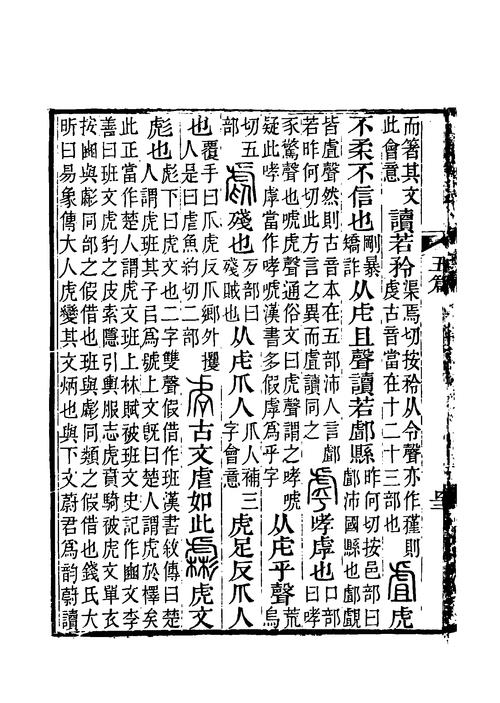 而箸其文此會意讀若矜渠焉切按矜从令聲亦作𥎊則虔古音當在十二十三部也虘虎
不柔不信也剛暴矯詐从虍且聲讀若䣜縣昨何切按邑部曰䣜沛國縣也䣜覰
皆虘聲然則古音本在五部沛人言䣜若昨何切此方言之異而虘讀同之虖哮虖也口部曰哮
豕驚聲也唬虎聲通俗文曰虎聲謂之哮唬疑此哮虖當作哮唬漢書多假虖爲乎字从虍乎聲荒烏
切五部虐殘也歺部曰殘賊也从虍爪人爪人補三字會意虎足反爪人
也覆手曰爪虎反爪鄉外攫人是曰虐魚約切二部古文虐如此虨虎文
彪也彪下曰虎文也二字雙聲假借作班漢書敘傳曰楚人謂虎班其子㠯爲號上文旣曰楚人謂虎於檡矣
此正當作楚人謂虎文班上林賦被班文史記作豳文李善曰班文虎豹之皮索隱引輿服志虎賁騎被虎文單衣
按豳與虨同部之假借也班與虨同類之假借也錢氏大昕曰易象傳大人虎變其文炳也與下文蔚君爲韵蔚讀
五篇